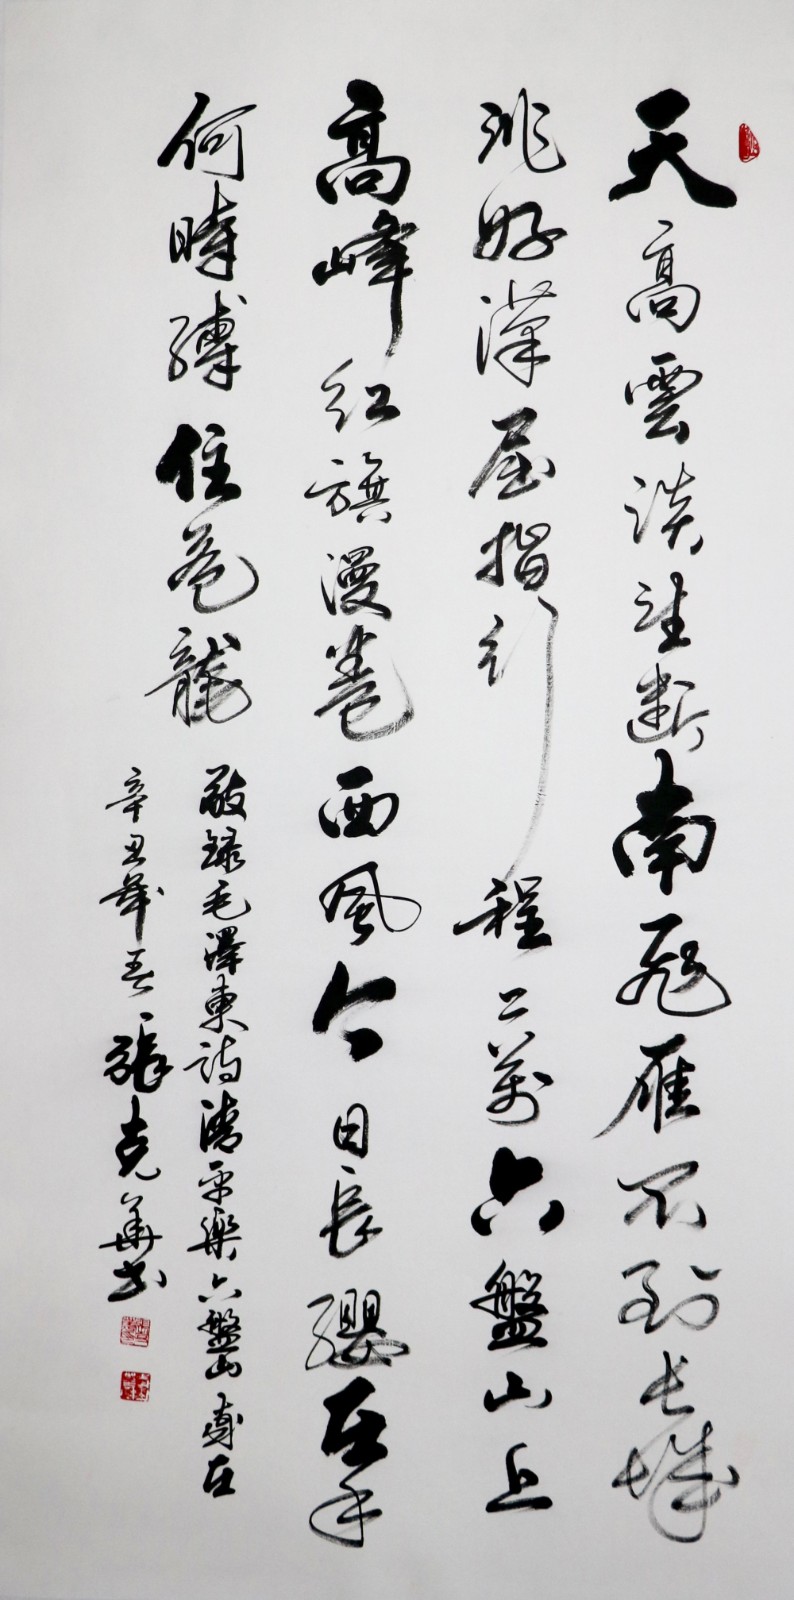 天高雲淡望斷南飛雁不到長城
非好漢屈指行程二萬六盤山上
高峰紅旗漫卷西風今日長纓在手
何時縛住蒼龍
敬録毛澤東詩清平樂六盤山歲在
辛丑年春張克華書